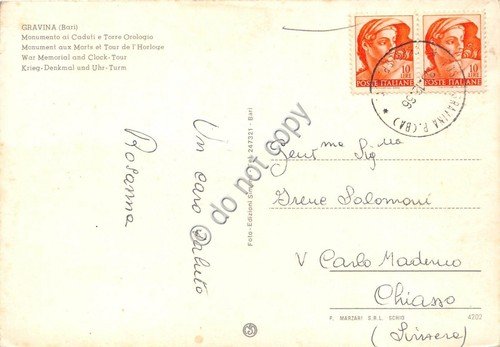 GRAVINA (Bari)
Monumento ai Caduti e Torre Orologio
Monument aux Morts et Tour de l'Horloge
War Memorial and Clock-Tour
Krieg-Denkmal und Uhr-Turm
10 LIRE
POSTE ITALIANE
10 LIRE
POSTE ITALIANE
GRAVINA P. (BA)
Un caro Saluto
Rosanna
Foto-Edizioni 247321 - Bari
do not copy
Gent.ma Sig.na
Irene Salomoni
V Carlo Maderno
Chiasso
(Svizzera)
P. MARZARI S.R.L. SCHIO
4202